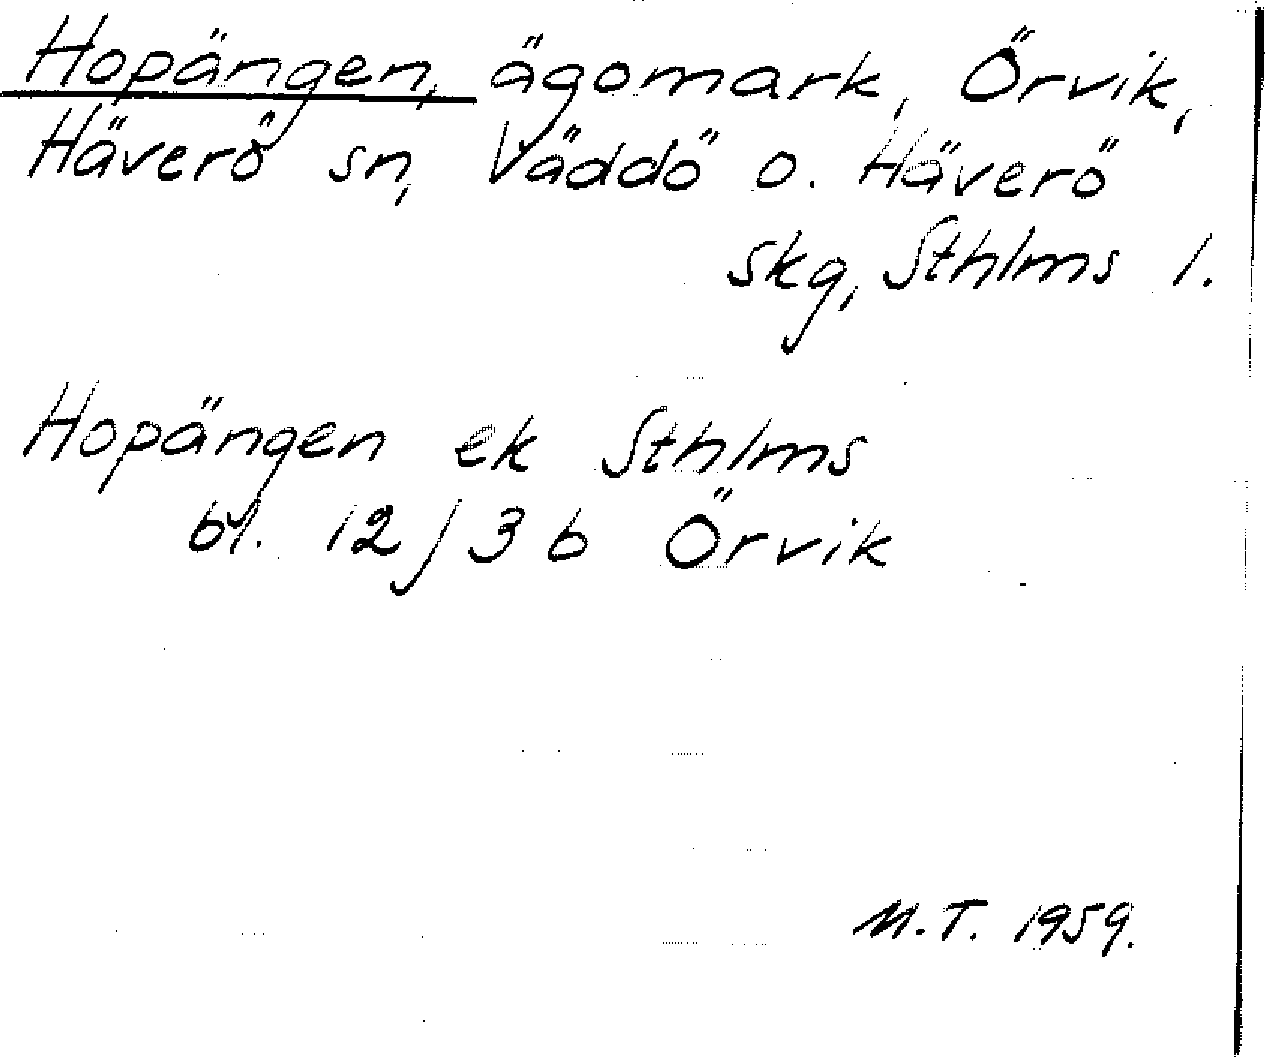 Hopängen, ägomark, Örvik,
Häverö sn, Väddö o. Häverö
skg, Sthlms l.
Hopängen ek Sthlms
bl. 12/3 b Örvik
M.T. 1959.